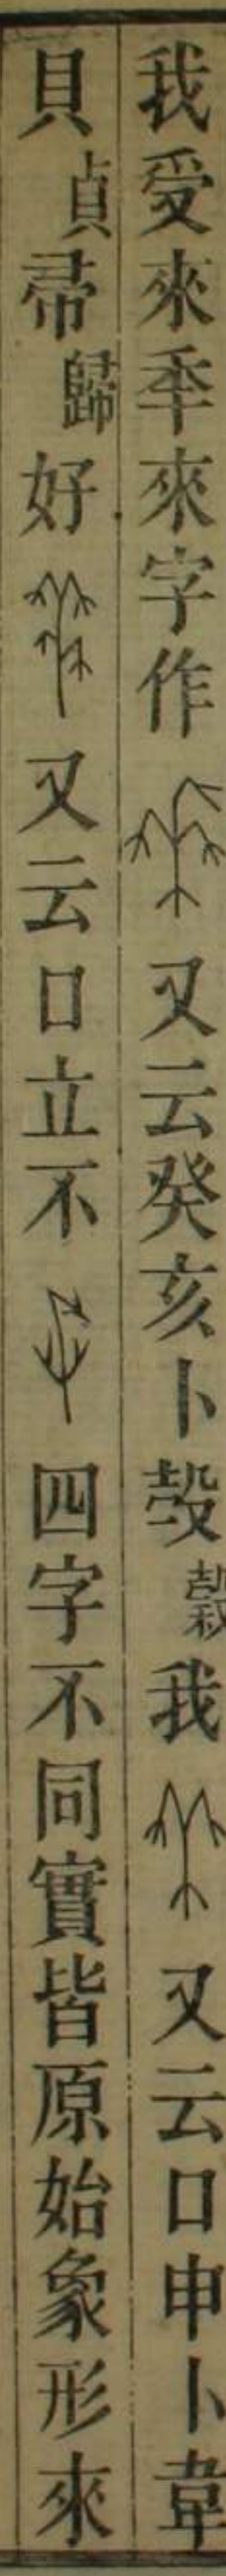 我受來秊來字作又云癸亥卜㱿穀我又云口申卜韋
貝貞帚歸好又云口立不四字不同實皆原始象形來